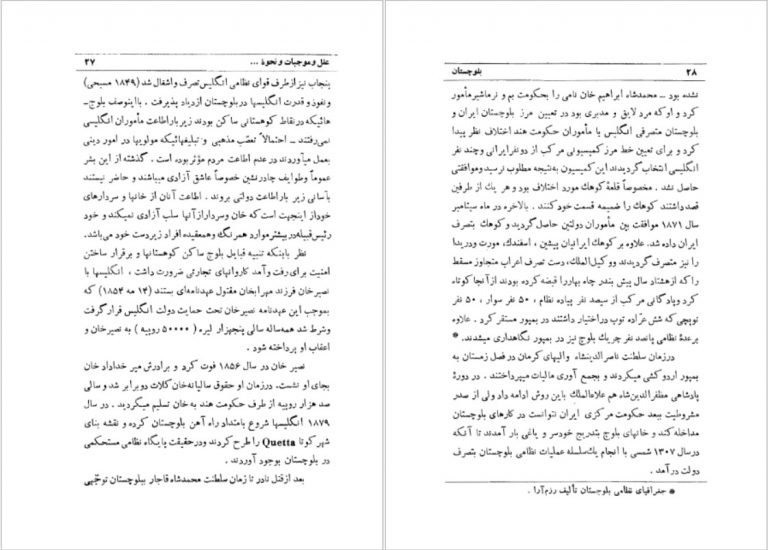 علل و موجبات و نحوهٔ ... ۲۷
پنجاب نیز از طرف قوای نظامی انگلیس تصرف و اشغال شد (۱۸۴۹ مسیحی)
و نفوذ و قدرت انگلیسها در بلوچستان ازدیاد پذیرفت . با اینوصف بلوچ-
هائیکه در نقاط کوهستانی ساکن بودند زیر بار اطاعت مأموران انگلیسی
نمی‌رفتند ـ احتمالاً تعصّب مذهبی و تبلیغهائیکه مولویها در امور دینی
بعمل میآوردند در عدم اطاعت مردم مؤثر بوده است . گذشته از این بشر
عموماً و طوایف چادرنشین خصوصاً عاشق آزادی میباشند و حاضر نیستند
بآسانی زیر بار اطاعت دولتی بروند . اطاعت آنان از خانها و سردارهای
خود از اینجهت است که خان و سردار از آنها سلب آزادی نمیکند و خود
رئیس قبیله در بیشتر موارد همرنگ و همعقیده افراد زیردست خود می‌باشد.
نظر باینکه تنبیه قبایل بلوچ ساکن کوهستانها و برقرار ساختن
امنیت برای رفت و آمد کاروانهای تجارتی ضرورت داشت ، انگلیسها با
نصیرخان فرزند مهرابخان مقتول عهدنامه‌ای بستند (۱۴ مه ۱۸۵۴) که
بموجب این عهدنامه نصیرخان تحت حمایت دولت انگلیس قرار گرفت
وشرط شد همه‌ساله سالی پنجهزار لیره (۵۰۰۰۰ روپیه) به نصیرخان و
اعقاب او پرداخته شود .
نصیر خان در سال ۱۸۵۶ فوت کرد و برادرش میر خداداد خان
بجای او نشست. درزمان او حقوق سالیانه خان کلات دو برابر شد و سالی
صد هزار روپیه از طرف حکومت هند به خان تسلیم میگردید . در سال
۱۸۷۹ انگلیسها شروع بامتداد راه آهن بلوچستان کرده و نقشه بنای
شهر کوتا Quetta را طرح کردند ودرحقیقت پایگاه نظامی مستحکمی
در بلوچستان بوجود آوردند .
بعد از قتل نادر تا زمان سلطنت محمدشاه قاجار ببلوچستان توجّهی
۲۸ بلوچستان
نشده بود ـ محمدشاه ابراهیم خان نامی را بحکومت بم و نرماشیر مأمور
کرد و او که مرد لایق و مدبری بود در تعیین مرز بلوچستان ایران و
بلوچستان متصرفی انگلیس با مأموران حکومت هند اختلاف نظر پیدا
کرد و برای تعیین خط مرز کمیسیونی مرکب از دونفر ایرانی و چند نفر
انگلیسی انتخاب گردیدند این کمیسیون به‌نتیجه مطلوب نرسید وموافقتی
حاصل نشد . مخصوصاً قلعهٔ کوهک مورد اختلاف بود و هر یك از طرفین
قصد داشتند کوهك را ضمیمه قسمت خود کنند . بالاخره در ماه سپتامبر
سال ۱۸۷۱ موافقت بین مأموران دولتین حاصل گردید و کوهك بتصرف
ایران داده شد . علاوه بر کوهك ایرانیان پیشین ، اسفندك، مورت ودریدا
را نیز متصرف گردیدند و وکیل‌الملك، دست تصرف اعراب متجاوز مسقط
را که از هشتاد سال پیش بندر چاه بهار را قبضه کرده بودند از آنجا کوتاه
کرد وپادگانی مرکب از سیصد نفر پیاده نظام ، ۵۰ نفر سوار ، ۵۰ نفر
توپچی که شش عرّاده توپ دراختیار داشتند در بمپور مستقر کرد . علاوه
برعدهٔ نظامی پانصد نفر چریك بلوچ نیز در بمپور نگاهداری میشدند. *
درزمان سلطنت ناصرالدینشاه والیهای کرمان در فصل زمستان به
بمپور اردو کشی میکردند و بجمع آوری مالیات میپرداختند . در دورهٔ
پادشاهی مظفرالدین‌شاه هم علاءالملك باین روش ادامه داد ولی از صدر
مشروطیت ببعد حکومت مرکزی ایران نتوانست در کارهای بلوچستان
مداخله کند و خانهای بلوچ بتدریج خودسر و یاغی بار آمدند تا آنکه
درسال ۱۳۰۷ شمسی با انجام یك‌سلسله عملیات نظامی بلوچستان بتصرف
دولت درآمد .
* جغرافیای نظامی بلوچستان تألیف رزم‌آرا .